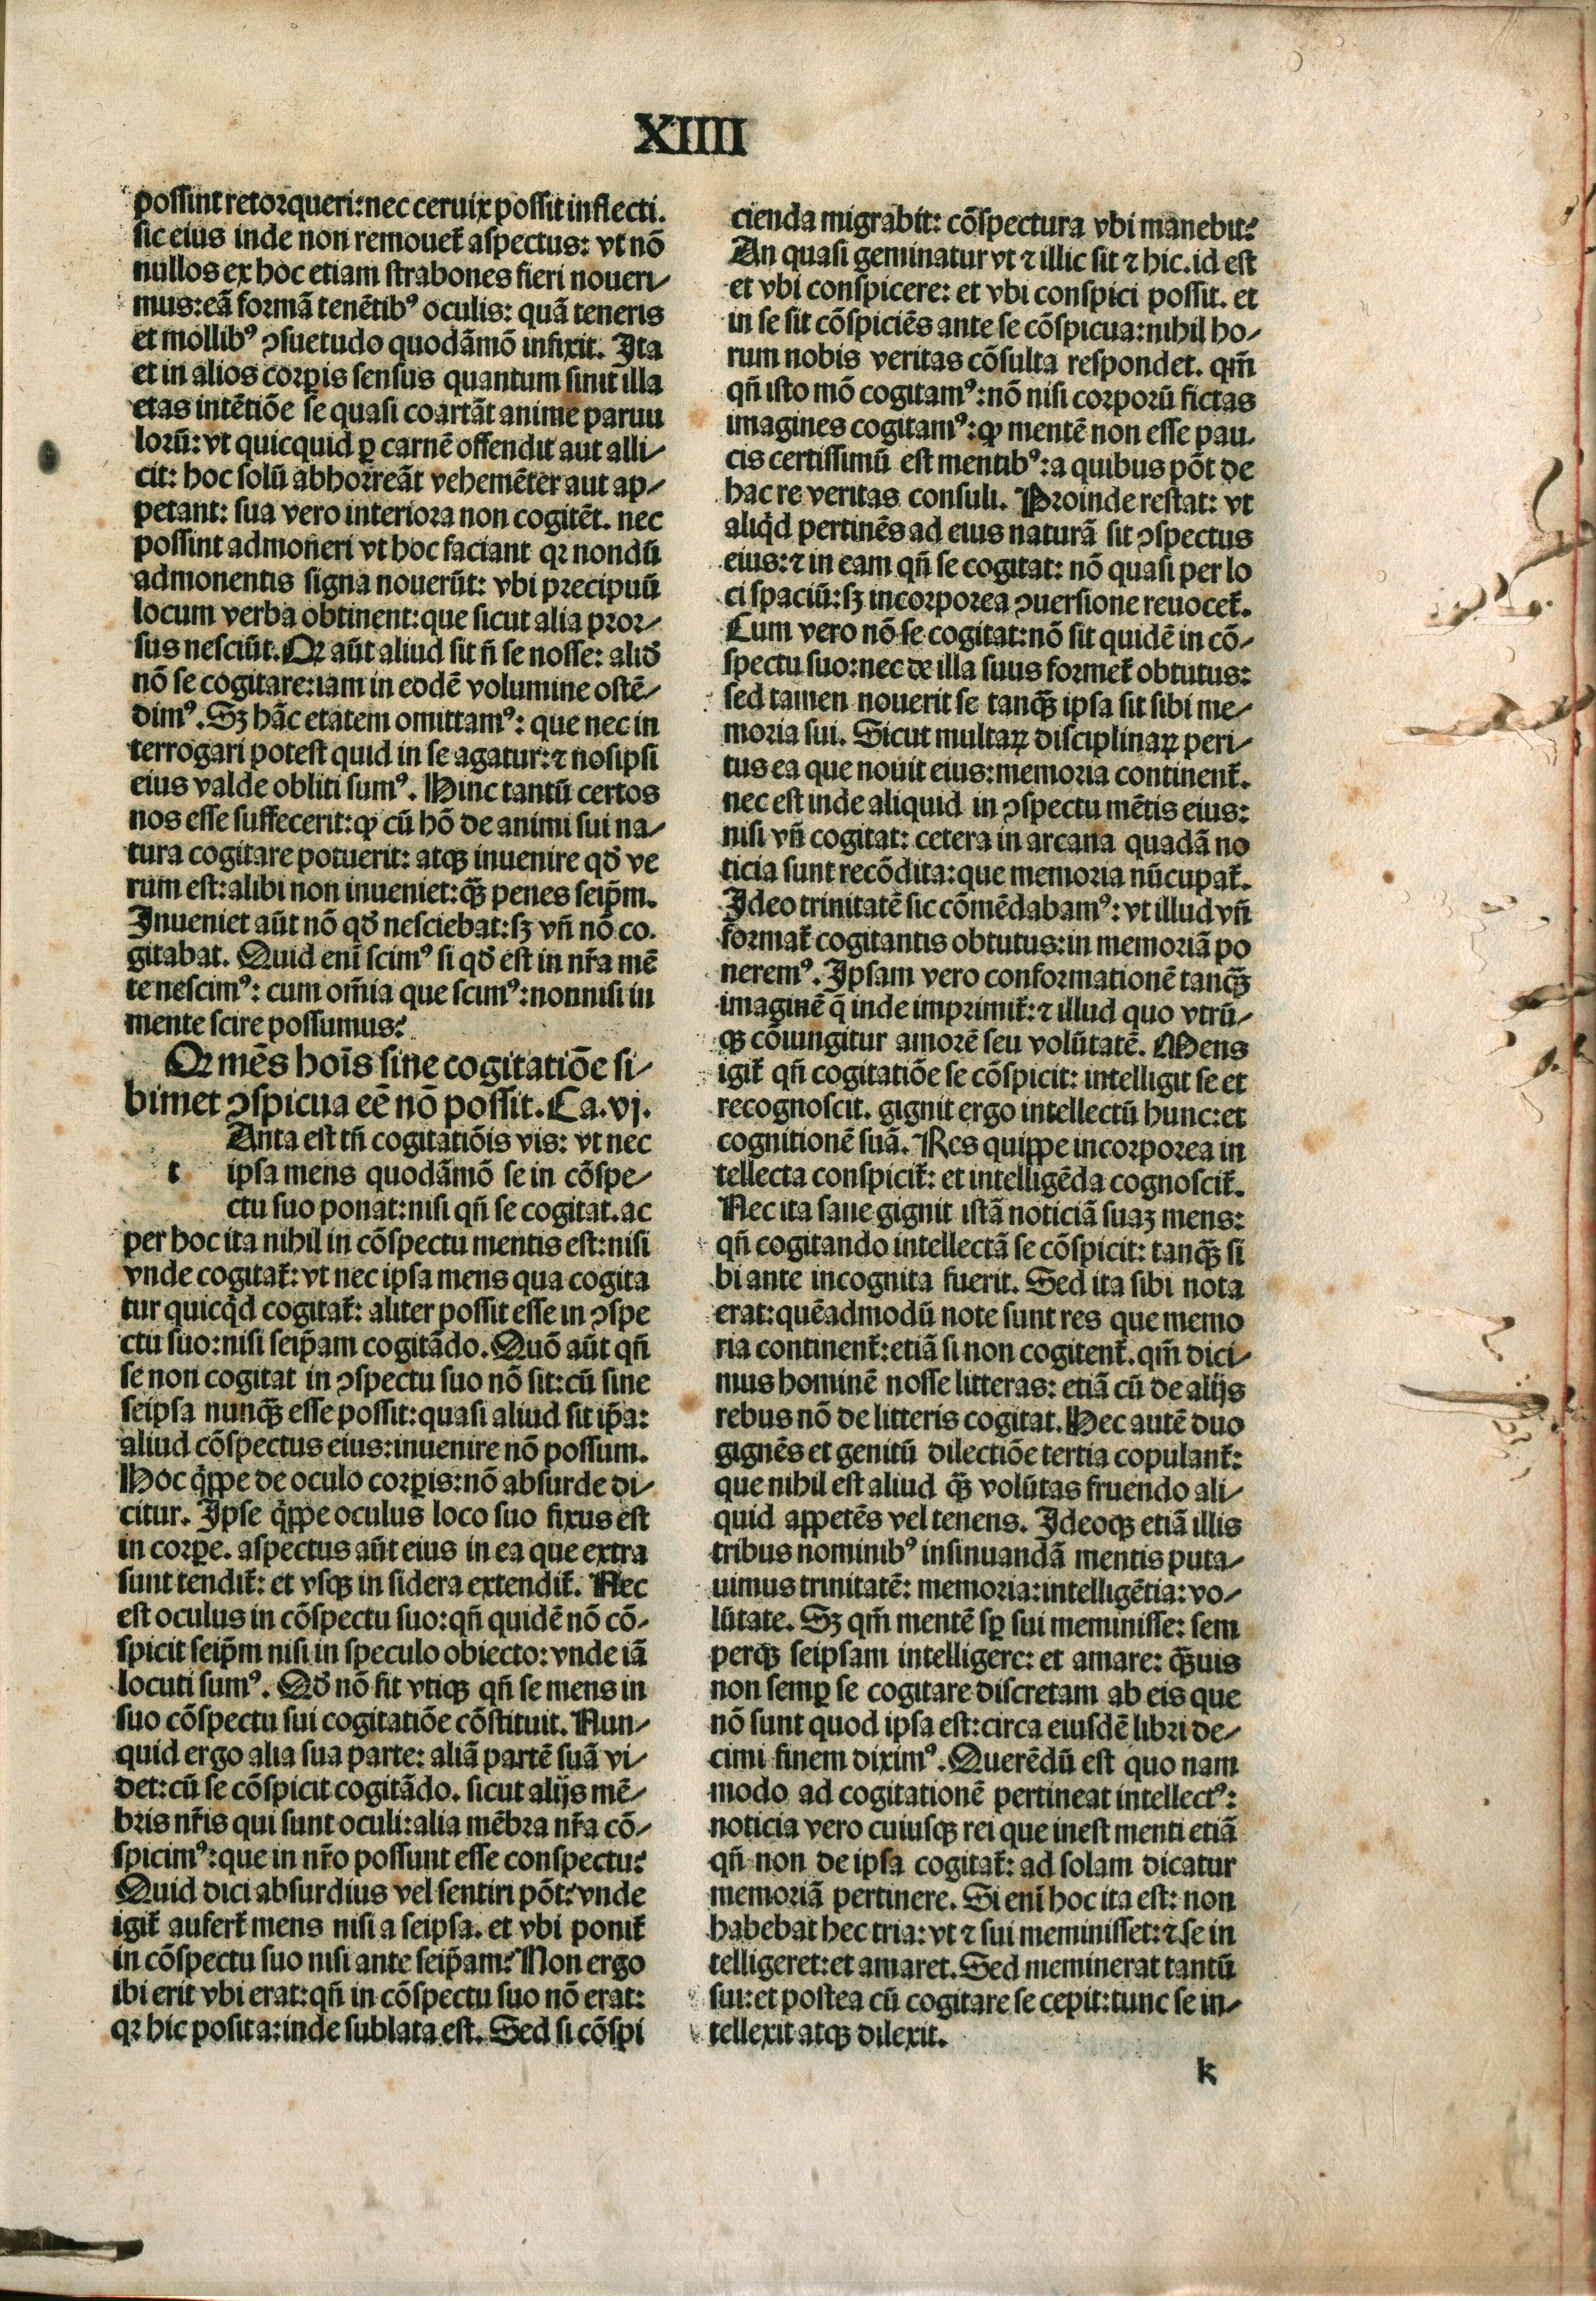 XIIII
possint retorqueri: nec ceruix possit inflecti.
sic eius inde non remouet᷑ aspectus: vt nō
nullos ex hoc etiam strabones fieri noueri/
mus: eā formā tenētibꝰ oculis: quā teneris
et mollibꝰ ꝯsuetudo quodāmō infixit. Ita
et in alios corꝑis sensus quantum sinit illa
etas intētiōe se quasi coartāt anime paruu
lorū: vt quicquid ꝑ carnē offendit aut alli/
cit: hoc solū abhorreāt vehemēter aut ap/
petant: sua vero interiora non cogitēt. nec
possint admoneri vt hoc faciant qꝛ nondū
admonentis signa nouerūt: vbi precipuū
locum verba obtinent: que sicut alia pror/
sus nesciūt. Qꝛ aūt aliud sit ñ se nosse: aliđ
nō se cogitare: iam in eodē volumine ostē/
dimꝰ. Sꝫ hāc etatem omittamꝰ: que nec in
terrogari potest quid in se agatur: ⁊ nosipsi
eius valde obliti sumꝰ. Hinc tantū certos
nos esse suffecerit: ꝙ cū hō de animi sui na/
tura cogitare potuerit: atqꝫ inuenire qđ ve
rum est: alibi non inueniet: qꝫ̄ penes seip̄m.
Inueniet aūt nō qđ nesciebat: sꝫ vñ nō co.
gitabat. Quid enī scimꝰ si qđ est in nr̄a mē
te nescimꝰ: cum om̄ia que scimꝰ: nonnisi in
mente scire possumus?
Qꝛ mēs hoīs sine cogitatiōe si/
bimet ꝯspicua eē nō possit. Ca. vj.
Anta est tñ cogitatiōis vis: vt nec
t ipsa mens quodāmō se in cōspe/
ctu suo ponat: nisi qñ se cogitat. ac
per hoc ita nihil in cōspectu mentis est: nisi
vnde cogitat᷑: vt nec ipsa mens qua cogita
tur quicq̇d cogitat᷑: aliter possit esse in ꝯspe
ctu suo: nisi seip̄am cogitādo. Quō aūt qñ
se non cogitat in ꝯspectu suo nō sit: cū sine
seipsa nunqꝫ̄ esse possit: quasi aliud sit ip̄a:
aliud cōspectus eius: inuenire nō possum.
Hoc q̇ppe de oculo corꝑis: nō absurde di/
citur. Ipse q̇ppe oculus loco suo fixus est
in corꝑe. aspectus aūt eius in ea que extra
sunt tendit᷑: et vsqꝫ in sidera extendit᷑. Nec
est oculus in cōspectu suo: qñ quidē nō cō/
spicit seip̄m nisi in speculo obiecto: vnde iā
locuti sumꝰ. Qđ nō fit vtiqꝫ qñ se mens in
suo cōspectu sui cogitatiōe cōstituit. Nun/
quid ergo alia sua parte: aliā partē suā vi/
det: cū se cōspicit cogitādo. sicut alijs mē/
bris nr̄is qui sunt oculi: alia mēbra nr̄a cō/
spicimꝰ: que in nr̄o possunt esse conspectu?
Quid dici absurdius vel sentiri pōt? vnde
igit᷑ aufert᷑ mens nisi a seipsa. et vbi ponit᷑
in cōspectu suo nisi ante seip̄am? Non ergo
ibi erit vbi erat: qñ in cōspectu suo nō erat:
qꝛ hic posita: inde sublata est. Sed si cōspi
cienda migrabit: cōspectura vbi manebit?
An quasi geminatur vt ⁊ illic sit ⁊ hic. id est
et vbi conspicere: et vbi conspici possit. et
in se sit cōspiciēs ante se cōspicua: nihil ho/
rum nobis veritas cōsulta respondet. qm̄
qñ isto mō cogitamꝰ: nō nisi corporū fictas
imagines cogitamꝰ: ꝙ mentē non esse pau.
cis certissimū est mentibꝰ: a quibus pōt de
hac re veritas consuli. Proinde restat: vt
aliq̇d pertinēs ad eius naturā sit ꝯspectus
eius: ⁊ in eam qñ se cogitat: nō quasi per lo
ci spaciū: sꝫ incorporea ꝯuersione reuocet᷑.
Cum vero nō se cogitat: nō sit quidē in cō/
spectu suo: nec de illa suus formet᷑ obtutus:
sed tamen nouerit se tanqꝫ̄ ipsa sit sibi me/
moria sui. Sicut multaꝝ disciplinaꝝ peri/
tus ea que nouit eius: memoria continent᷑.
nec est inde aliquid in ꝯspectu mētis eius:
nisi vñ cogitat: cetera in arcana quadā no
ticia sunt recōdita: que memoria nūcupat᷑.
Ideo trinitatē sic cōmēdabamꝰ: vt illud vñ
format᷑ cogitantis obtutus: in memoriā po
neremꝰ. Ipsam vero conformationē tanqꝫ̄
imaginē q̄ inde imprimit᷑: ⁊ illud quo vtrū/
qꝫ cōiungitur amorē seu volūtatē. Mens
igit᷑ qñ cogitatiōe se cōspicit: intelligit se et
recognoscit. gignit ergo intellectū hunc: et
cognitionē suā. Res quippe incorporea in
tellecta conspicit᷑: et intelligēda cognoscit᷑.
Nec ita sane gignit istā noticiā suaꝫ mens:
qñ cogitando intellectā se cōspicit: tanqꝫ̄ si
bi ante incognita fuerit. Sed ita sibi nota
erat: quēadmodū note sunt res que memo
ria continent᷑: etiā si non cogitent᷑. qm̄ dici/
mus hominē nosse litteras: etiā cū de alijs
rebus nō de litteris cogitat. Hec autē duo
gignēs et genitū dilectiōe tertia copulant᷑:
que nihil est aliud qꝫ̄ volūtas fruendo ali/
quid appetēs vel tenens. Ideoqꝫ etiā illis
tribus nominibꝰ insinuandā mentis puta/
uimus trinitatē: memoria: intelligētia: vo/
lūtate. Sꝫ qm̄ mentē sꝑ sui meminisse: sem
perqꝫ seipsam intelligere: et amare: qꝫ̄uis
non semꝑ se cogitare discretam ab eis que
nō sunt quod ipsa est: circa eiusdē libri de/
cimi finem diximꝰ. Querēdū est quo nam
modo ad cogitationē pertineat intellectꝰ:
noticia vero cuiusqꝫ rei que inest menti etiā
qñ non de ipsa cogitat᷑: ad solam dicatur
memoriā pertinere. Si enī hoc ita est: non
habebat hec tria: vt ⁊ sui meminisset: ⁊ se in
telligeret: et amaret. Sed meminerat tantū
sui: et postea cū cogitare se cepit: tunc se in/
tellexit atqꝫ dilexit.
k